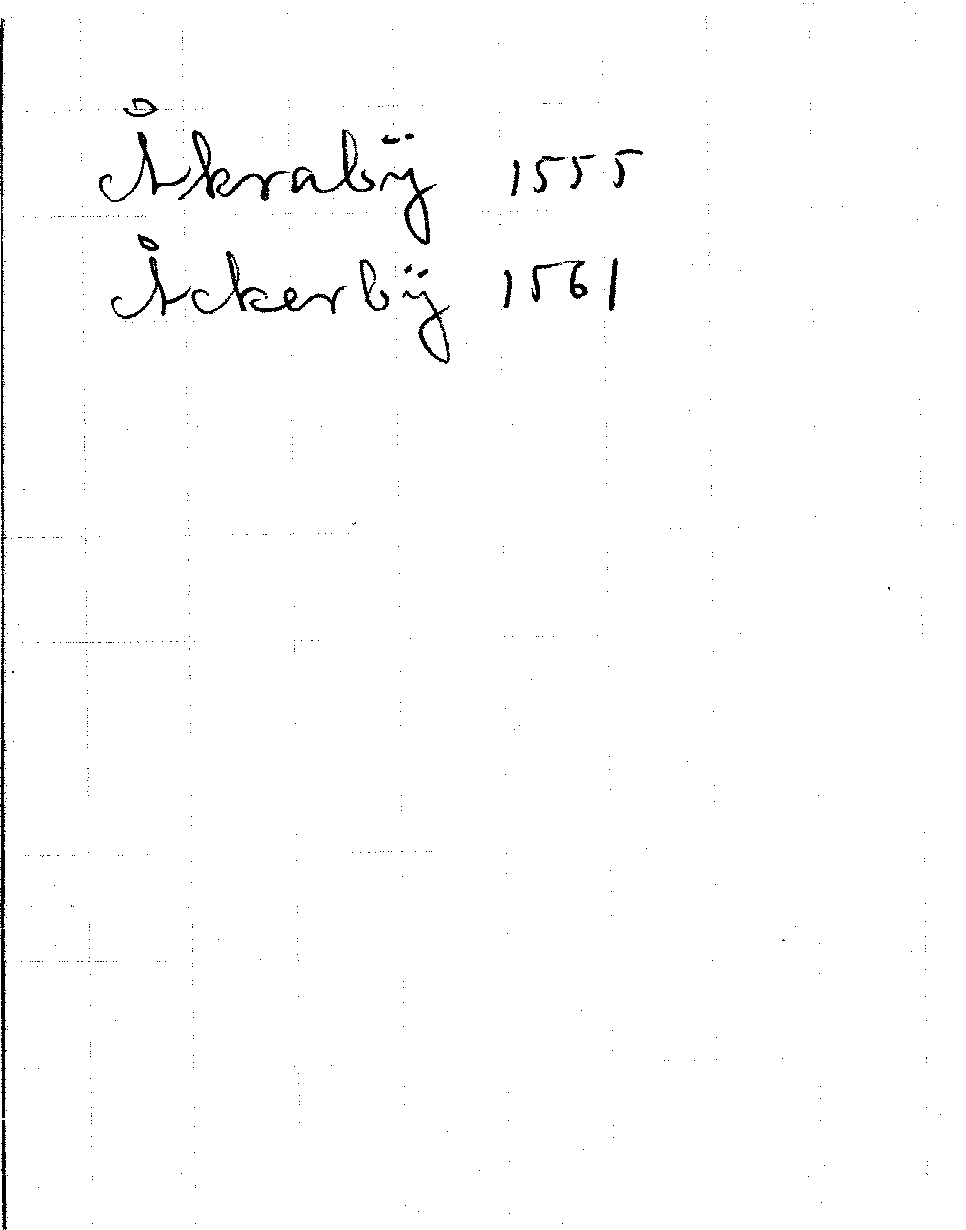 Åkrabÿ 1555
Åckerbÿ 1561